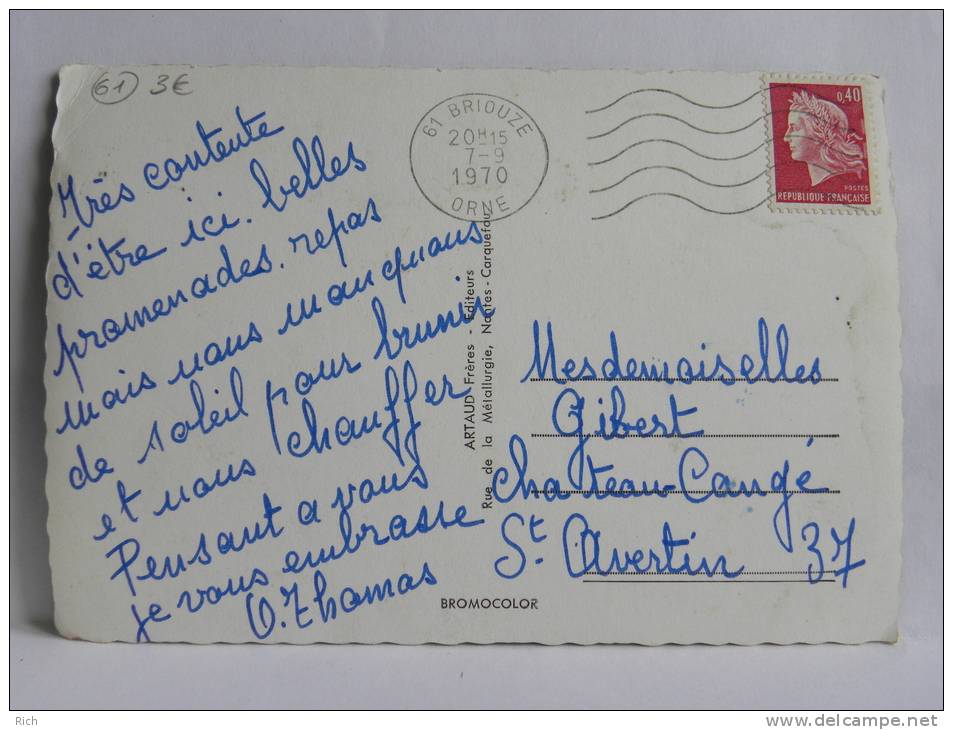 61 3€
61 BRIOUZE
20H15
7-9
1970
ORNE
0,40
POSTES
REPUBLIQUE FRANÇAISE
Très contente
d'être ici. belles
promenades. repas
mais nous manquons
de soleil pour brunir
et nous chauffer
Pensant a vous
je vous embrasse
O. Thomas
ARTAUD Frères - Editeurs
Rue de la Métallurgie, Nantes-Carquefou
Mesdemoiselles
Gibert
Chateau-Cangé
St Avertin 37
BROMOCOLOR
Rich
http://www.delcampe.net